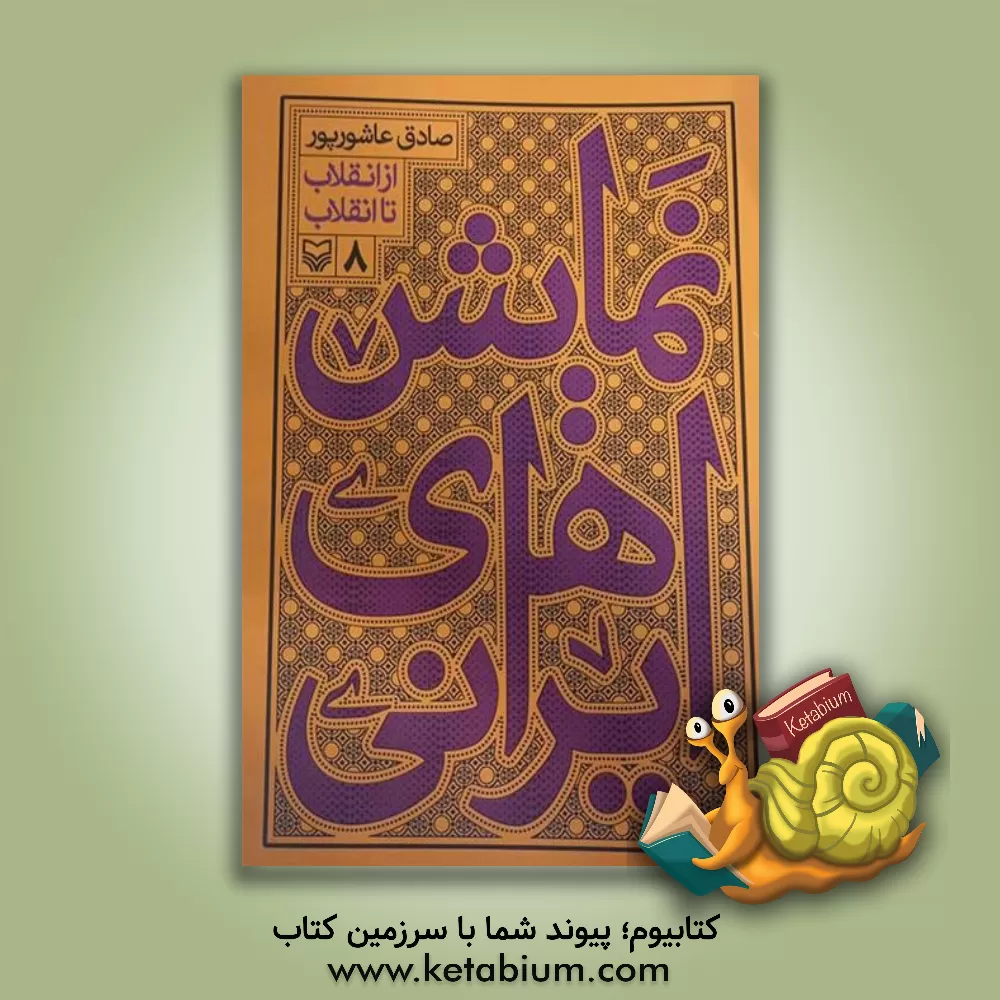 صادق عاشورپور
از انقلاب
تا انقلاب
۸
نمایش
های
ایرانی
Ketabium
کتابیوم؛ پیوند شما با سرزمین کتاب
www.ketabium.com